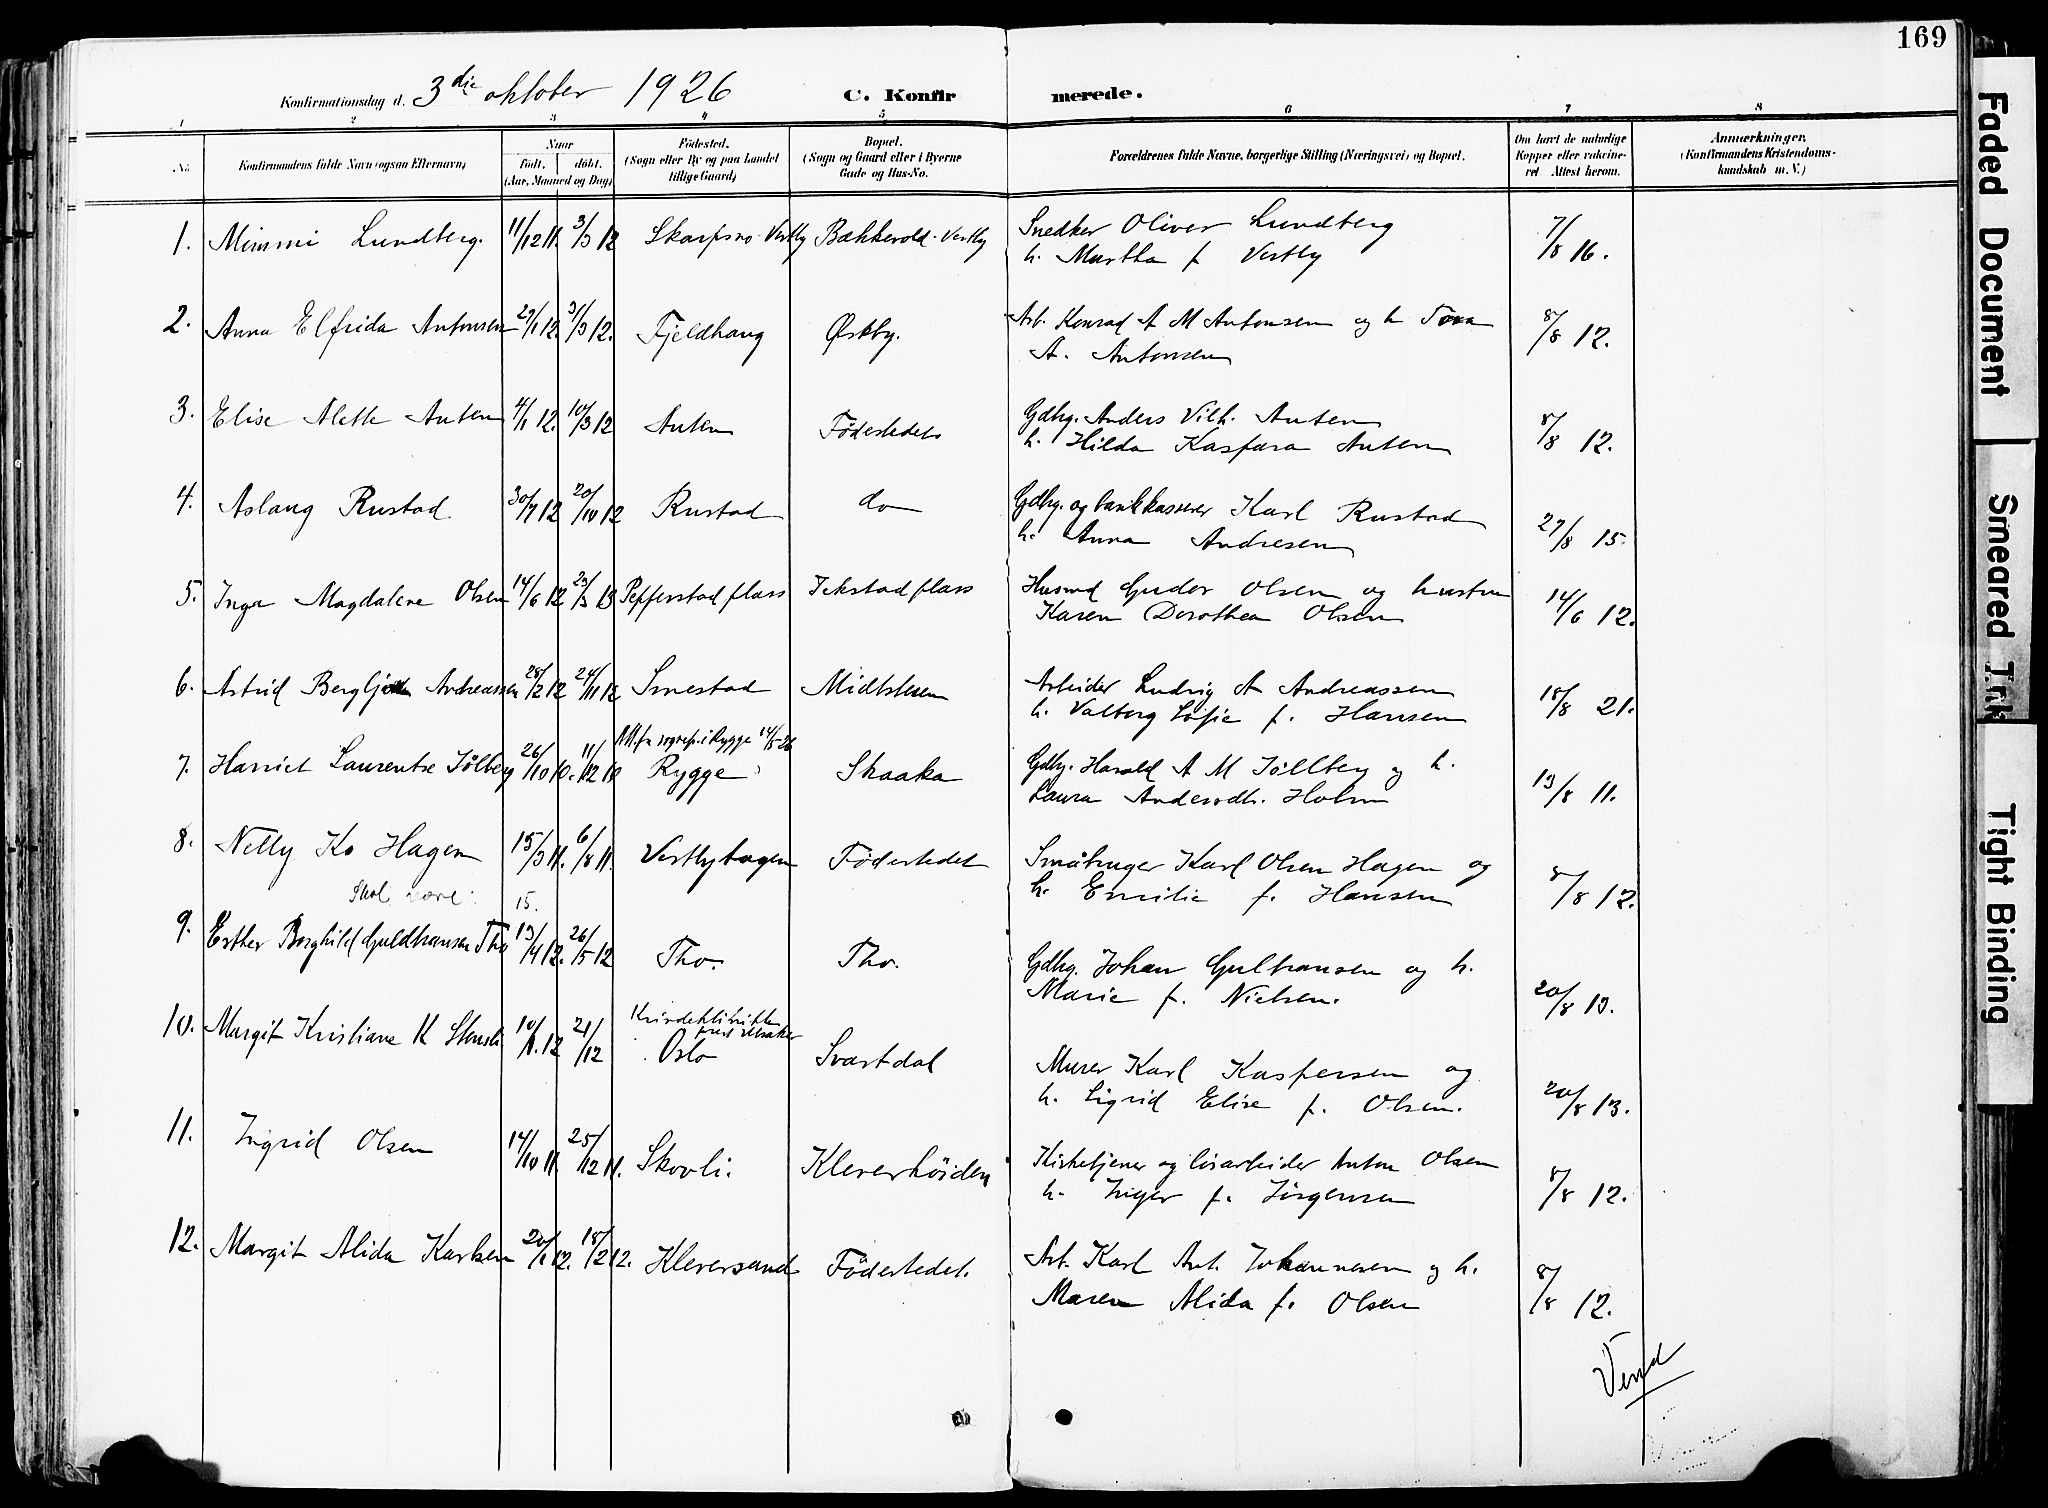 169
Konfirmationsdag d. 3die oktober 1926 C. Konfirmerede.
1 2 3 4 5 6 7 8
No.
Konfirmandens fulde Navn (ogsaa Efternavn).
Naar
født. døbt.
(Aar, Maaned og Dag)
Fødested.
(Sogn eller By og paa Landet
tillige Gaard)
Bopæl.
(Sogn og Gaard eller i Byerne
Gade og Hus-No.
Forældrenes fulde Navne, borgerlige Stilling (Næringsvei) og Bopæl.
Om havt de naturlige
Kopper eller vakcine-
ret. Attest herom.
Anmærkninger.
(Konfirmandens Kristendoms-
kundskab m. V.)
1. Mimmi Lundberg. 11/12 11. 3/3 12 Skarpsno-Vestby Bækkevold-Vestby Snedker Oliver Lundberg 7/8 16.
h. Martha f Vestby
2. Anna Elfrida Antonsen 29/1 12. 31/3 12. Fjeldhaug Østby. Arb. Konrad A M Antonsen og h Tora 8/8 12.
A. Antonsen
3. Elise Alette Anten 4/1 12. 10/3 12 Anten Fødestedet Gdbg. Anders Vilh. Anten 8/8 12.
h. Hilda Kaspara Anten
4. Aslaug Rustad 30/7 12 20/10 12 Rustad do Gdbg. og bankkasserer Karl Rustad 27/8 15.
h. Anna Andresen
5. Inga Magdalene Olsen 14/6 12 23/3 13 Pepperstad plass Ikstad plass Husmd Gudor Olsen og hustru 14/6 12.
Karen Dorothea Olsen
6. Astrid Bergljot Andreassen 28/2 12 24/11 12 Smestad Midtsleem Arbeider Ludvig A Andreassen 18/8 21.
h. Valborg Sofie f. Hansen
i Rygge 14/5-26
7. Harriet Laurentse Sölberg 26/10 10. 11/12 10 Rygge Skaaka Gdbg. Harald A M Söllberg og h. 13/8 11.
Laura Andersdtr. Holm
8. Nelly Ko Hagen 15/3 11. 6/8 11. Vestbyhagen Fødestedet Småbruger Karl Olsen Hagen og 8/8 12.
h. Emilie f. Hansen
Skal være: 15.
9. Esther Borghild Guldhansen Tho 13/4 12. 26/5 12 Tho. Tho. Gdbg. Johan Gulhansen og h. 20/8 13.
Marie f. Nielsen.
10. Margit Kristiane K Stensli 10/1. 12 21/12 Kvindeklinikken
Oslo Svartdal Murer Karl Kaspersen og 20/8 13.
h. Sigrid Elise f. Olsen.
11. Ingrid Olsen 14/10 11 25/12 11. Skovli. Kleverhöiden Kirketjener og løsarbeider Anton Olsen 8/8 12.
h. Inger f. Jörgensen
12. Margit Alida Karlsen 20/1 12. 18/2 12. Kleversund Födestedet. Arb. Karl Ant. Johannesen og h. 8/8 12.
Maren Alida f. Olsen
Vend
Faded Document
Smeared Ink
Tight Binding